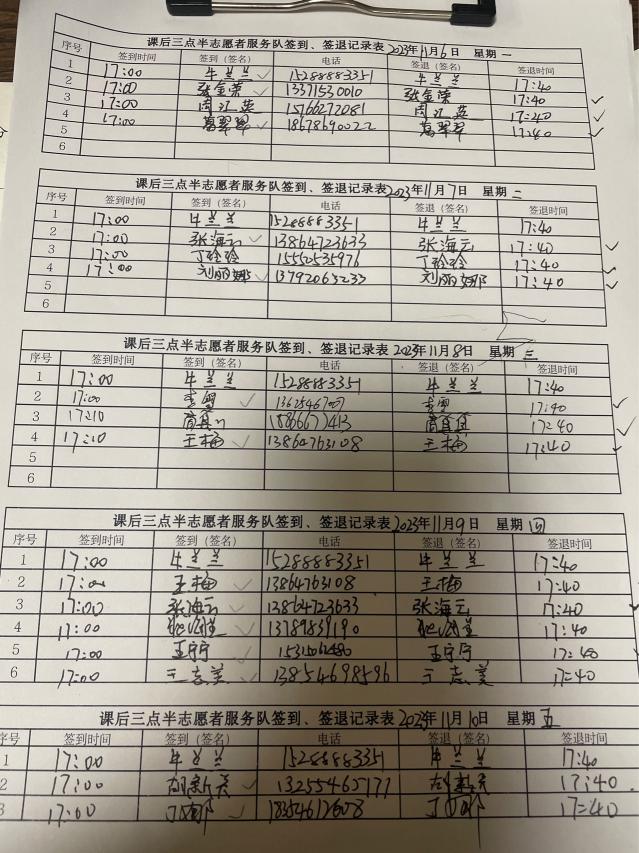 课后三点半志愿者服务队签到、签退记录表 2023年11月6日 星期 一
序号 签到时间 签到（签名） 电话 签退（签名） 签退时间
1 17:00 牛兰兰 15288883351 牛兰兰 17:40
2 17:00 张金荣 13371530010 张金荣 17:40
3 17:00 周江英 15766272081 周江英 17:40
4 17:00 葛翠翠 18678690022 葛翠翠 17:40
5
6
课后三点半志愿者服务队签到、签退记录表 2023年11月7日 星期 二
序号 签到时间 签到（签名） 电话 签退（签名） 签退时间
1 17:00 牛兰兰 15288883351 牛兰兰 17:40
2 17:00 张海云 13864723633 张海云 17:40
3 17:00 丁玲玲 15552535976 丁玲玲 17:40
4 17:00 刘丽娜 13792063233 刘丽娜 17:40
5
6
课后三点半志愿者服务队签到、签退记录表 2023年11月8日 星期 三
序号 签到时间 签到（签名） 电话 签退（签名） 签退时间
1 17:00 牛兰兰 15288883351 牛兰兰 17:40
2 17:00 17:40
3 17:10 17:40
4 17:10 王梅 13864763108 王梅 17:40
5
6
课后三点半志愿者服务队签到、签退记录表 2023年11月9日 星期 四
序号 签到时间 签到（签名） 电话 签退（签名） 签退时间
1 17:00 牛兰兰 15288883351 牛兰兰 17:40
2 17:00 王梅 13864763108 王梅 17:40
3 17:00 张海云 13864723633 张海云 17:40
4 17:00 13789839190 17:40
5 17:00 王宁宁 王宁宁 17:40
6 17:00 王志美 13854698596 王志美 17:40
课后三点半志愿者服务队签到、签退记录表 2023年11月10日 星期 五
序号 签到时间 签到（签名） 电话 签退（签名） 签退时间
1 17:00 牛兰兰 15288883351 牛兰兰 17:40
2 17:00 13255465177 17:40
3 17:00 18354612608 17:40